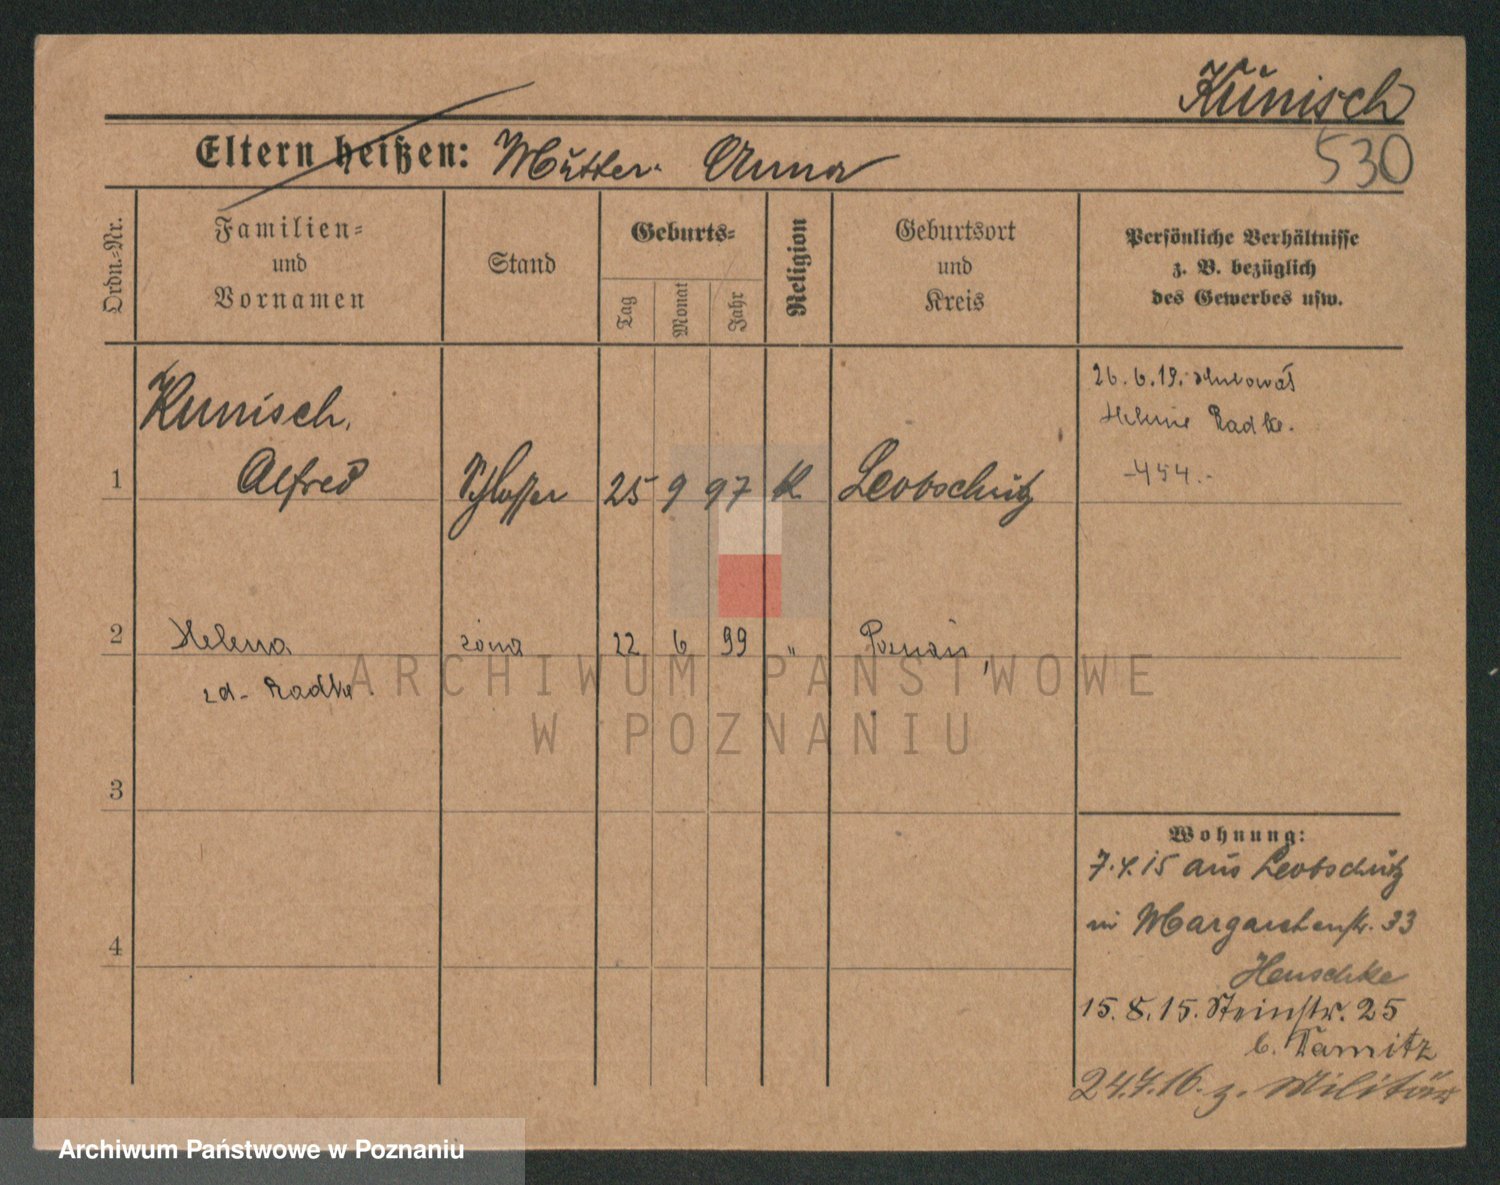 Kunisch
530
Eltern heißen: Mutter: Anna
Ordn.-Nr.
Familien- und Vornamen
Stand
Geburts-
Tag
Monat
Jahr
Religion
Geburtsort und Kreis
Persönliche Verhältnisse
z. B. bezüglich
des Gewerbes usw.
26.6.19.
Helenie Radke.
-454.-
Kunisch,
1 Alfred Schlosser 25 9 97 K Leobschütz
2 Helena żona 22 6 99 " Poznań,
zd. Radke.
3
4
Wohnung:
7.4.15 aus Leobschütz
in Margaretenstr. 33
Henschke
15.8.15. Steinstr. 25
b. Tamitz
24.7.16. z. Militär
ARCHIWUM PAŃSTWOWE
W POZNANIU
Archiwum Państwowe w Poznaniu